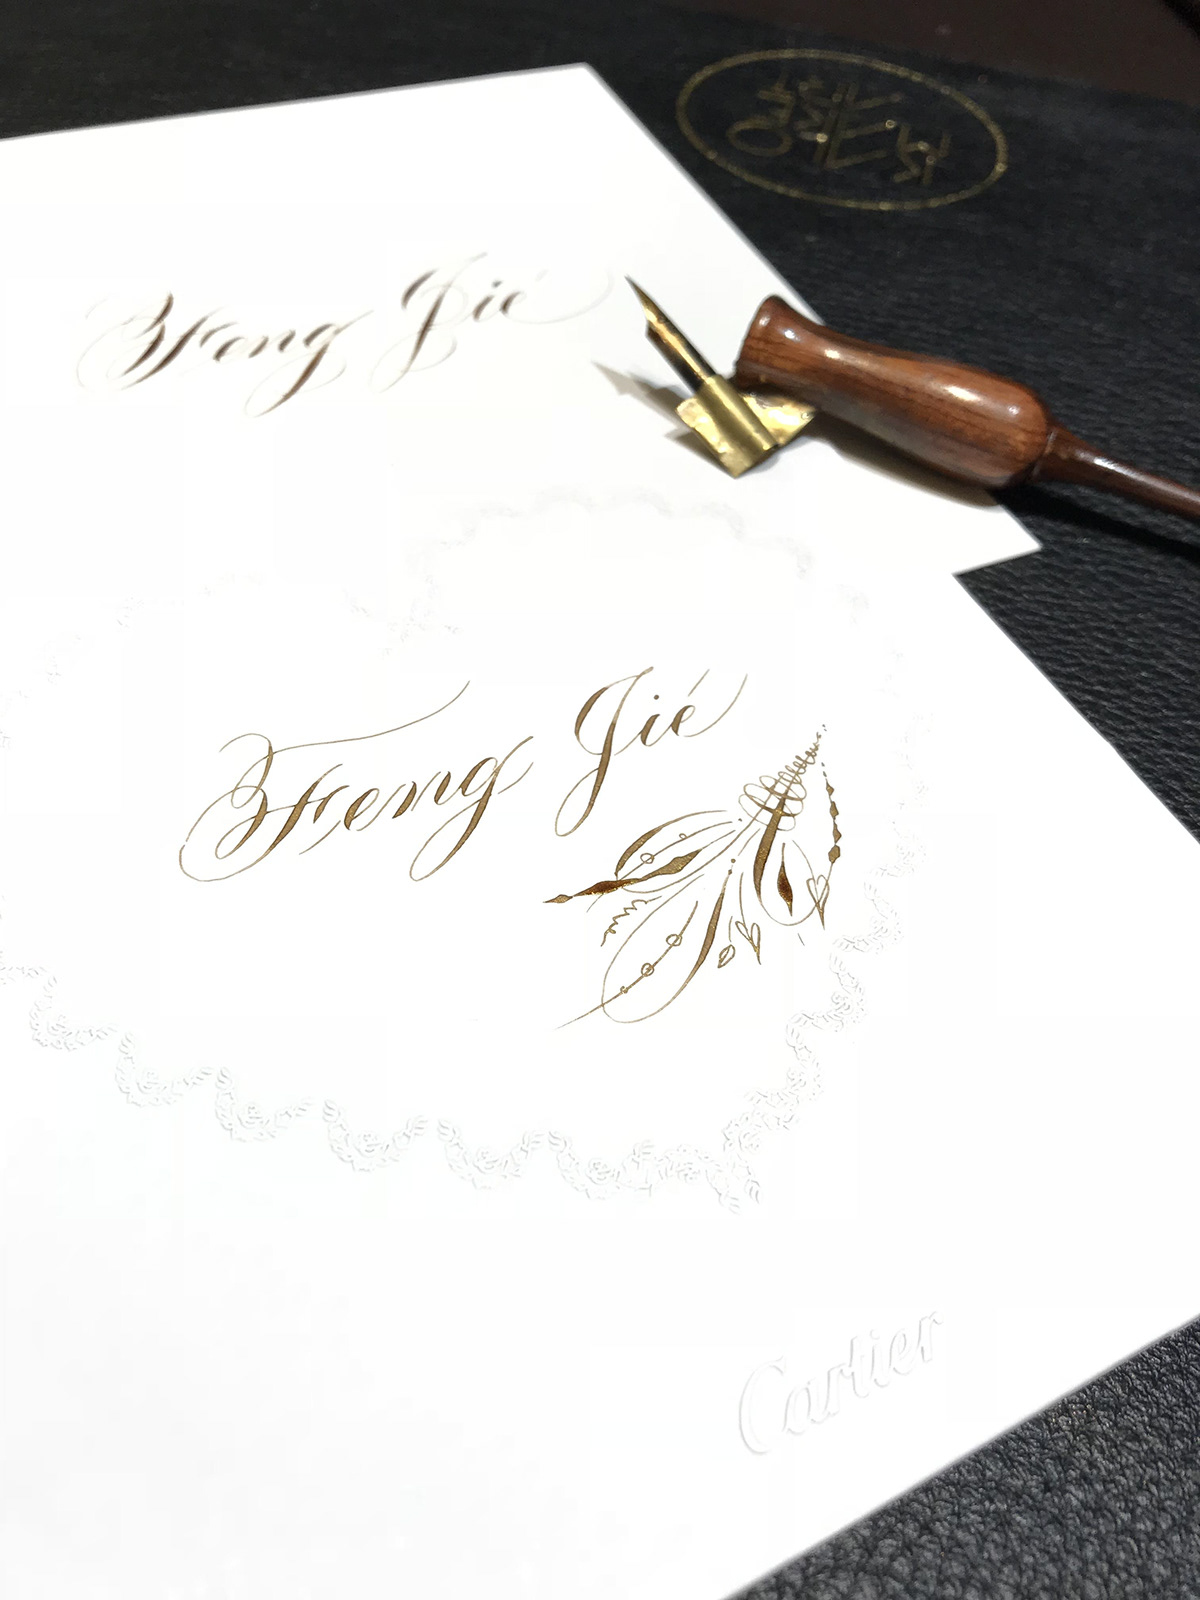 Feng Jié
Feng Jié
Cartier